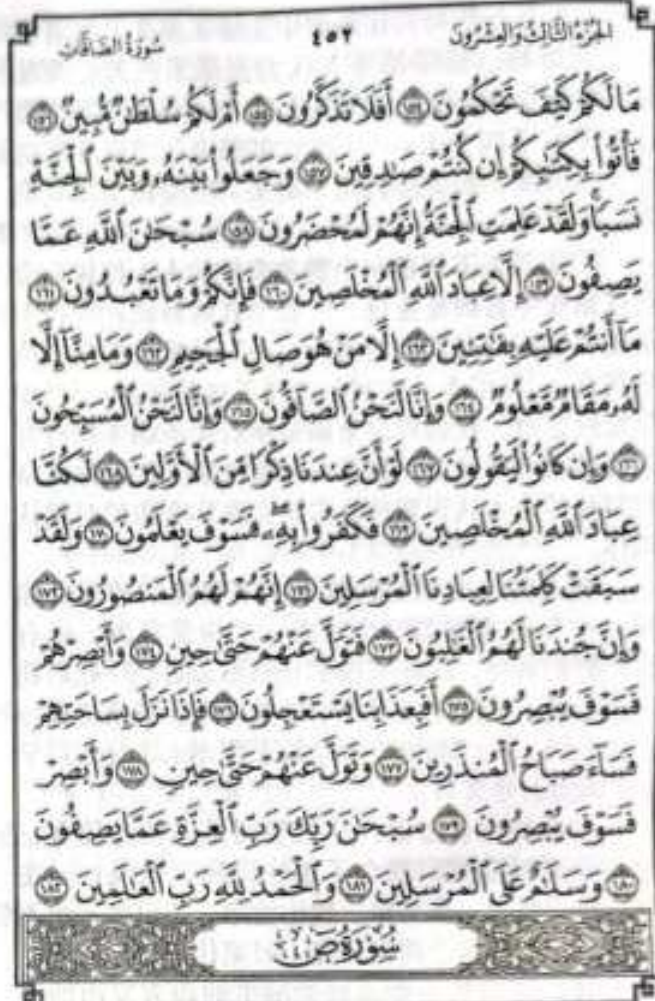 الجزء الثالث والعشرون ٤٥٢ سورة الصافات
مَا لَكُمْ كَيْفَ تَحْكُمُونَ ١٥٤ أَفَلَا تَذَكَّرُونَ ١٥٥ أَمْ لَكُمْ سُلْطَٰنٌ مُّبِينٌ ١٥٦
فَأْتُوا۟ بِكِتَٰبِكُمْ إِن كُنتُمْ صَٰدِقِينَ ١٥٧ وَجَعَلُوا۟ بَيْنَهُۥ وَبَيْنَ ٱلْجِنَّةِ
نَسَبًا ۚ وَلَقَدْ عَلِمَتِ ٱلْجِنَّةُ إِنَّهُمْ لَمُحْضَرُونَ ١٥٨ سُبْحَٰنَ ٱللَّهِ عَمَّا
يَصِفُونَ ١٥٩ إِلَّا عِبَادَ ٱللَّهِ ٱلْمُخْلَصِينَ ١٦٠ فَإِنَّكُمْ وَمَا تَعْبُدُونَ ١٦١
مَآ أَنتُمْ عَلَيْهِ بِفَٰتِنِينَ ١٦٢ إِلَّا مَنْ هُوَ صَالِ ٱلْجَحِيمِ ١٦٣ وَمَا مِنَّآ إِلَّا
لَهُۥ مَقَامٌ مَّعْلُومٌ ١٦٤ وَإِنَّا لَنَحْنُ ٱلصَّآفُّونَ ١٦٥ وَإِنَّا لَنَحْنُ ٱلْمُسَبِّحُونَ
١٦٦ وَإِن كَانُوا۟ لَيَقُولُونَ ١٦٧ لَوْ أَنَّ عِندَنَا ذِكْرًا مِّنَ ٱلْأَوَّلِينَ ١٦٨ لَكُنَّا
عِبَادَ ٱللَّهِ ٱلْمُخْلَصِينَ ١٦٩ فَكَفَرُوا۟ بِهِۦ ۖ فَسَوْفَ يَعْلَمُونَ ١٧٠ وَلَقَدْ
سَبَقَتْ كَلِمَتُنَا لِعِبَادِنَا ٱلْمُرْسَلِينَ ١٧١ إِنَّهُمْ لَهُمُ ٱلْمَنصُورُونَ ١٧٢
وَإِنَّ جُندَنَا لَهُمُ ٱلْغَٰلِبُونَ ١٧٣ فَتَوَلَّ عَنْهُمْ حَتَّىٰ حِينٍ ١٧٤ وَأَبْصِرْهُمْ
فَسَوْفَ يُبْصِرُونَ ١٧٥ أَفَبِعَذَابِنَا يَسْتَعْجِلُونَ ١٧٦ فَإِذَا نَزَلَ بِسَاحَتِهِمْ
فَسَآءَ صَبَاحُ ٱلْمُنذَرِينَ ١٧٧ وَتَوَلَّ عَنْهُمْ حَتَّىٰ حِينٍ ١٧٨ وَأَبْصِرْ
فَسَوْفَ يُبْصِرُونَ ١٧٩ سُبْحَٰنَ رَبِّكَ رَبِّ ٱلْعِزَّةِ عَمَّا يَصِفُونَ
١٨٠ وَسَلَٰمٌ عَلَى ٱلْمُرْسَلِينَ ١٨١ وَٱلْحَمْدُ لِلَّهِ رَبِّ ٱلْعَٰلَمِينَ ١٨٢
سُورَةُ ص